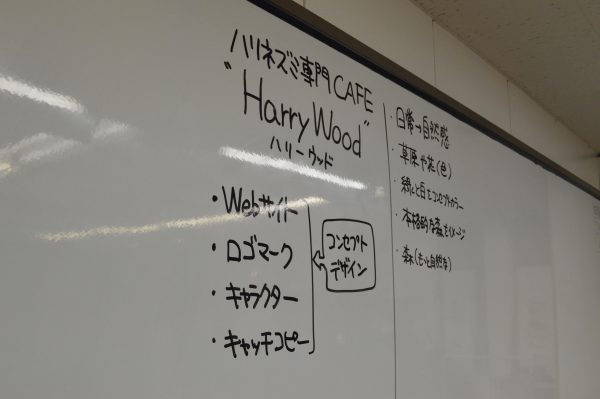 ハリネズミ専門CAFE
"Harry Wood"
ハリーウッド
・Webサイト
・ロゴマーク
・キャラクター
・キャッチコピー
コンセプト
デザイン
・日常→自然感
・草原や花(色)
・緑と白をコンセプトカラー
・本格的な森をイメージ
・森(もっと自然な)